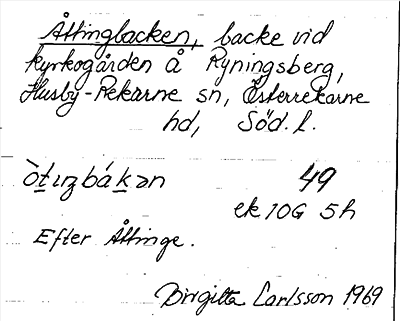 Åttingbacken, backe vid
kyrkogården å Ryningsberg,
Husby-Rekarne sn, Österrekarne
hd, Söd. l.
òt̲ɪŋbák̲ən 49
ek 10G 5h
Efter Åttinge.
Birgitta Carlsson 1969